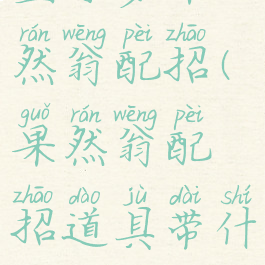 rán wēng pèi zhāo
然翁配招(
guǒ rán wēng pèi
果然翁配
zhāo dào jù dài shí
招道具带什